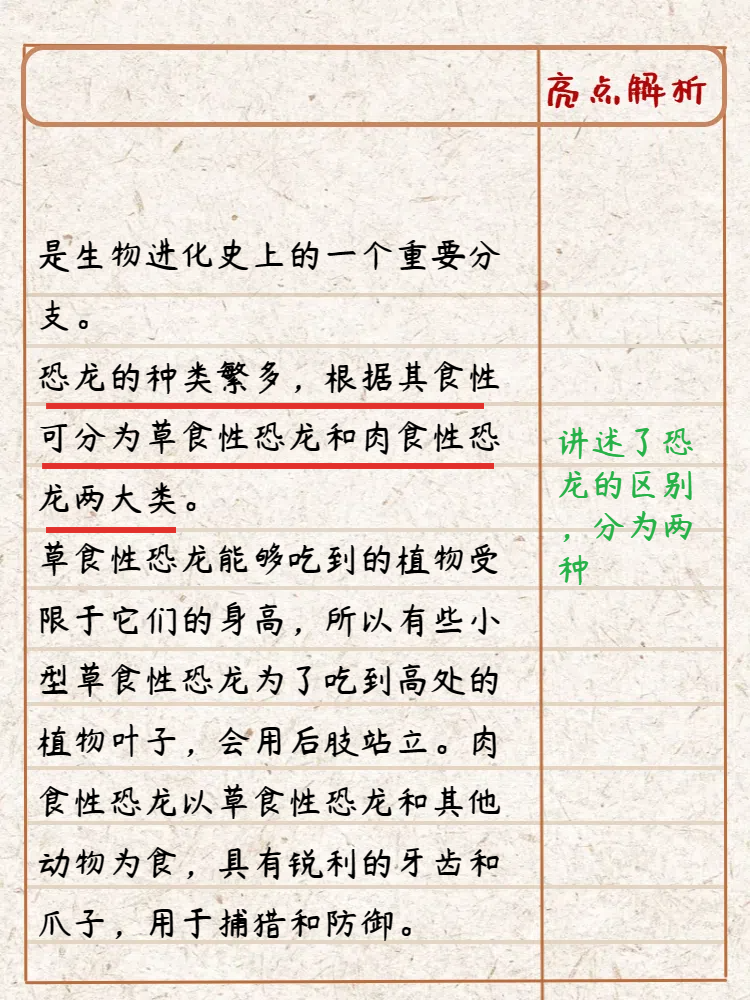 亮点解析
是生物进化史上的一个重要分
支。
恐龙的种类繁多，根据其食性
可分为草食性恐龙和肉食性恐
龙两大类。
草食性恐龙能够吃到的植物受
限于它们的身高，所以有些小
型草食性恐龙为了吃到高处的
植物叶子，会用后肢站立。肉
食性恐龙以草食性恐龙和其他
动物为食，具有锐利的牙齿和
爪子，用于捕猎和防御。
讲述了恐
龙的区别
，分为两
种